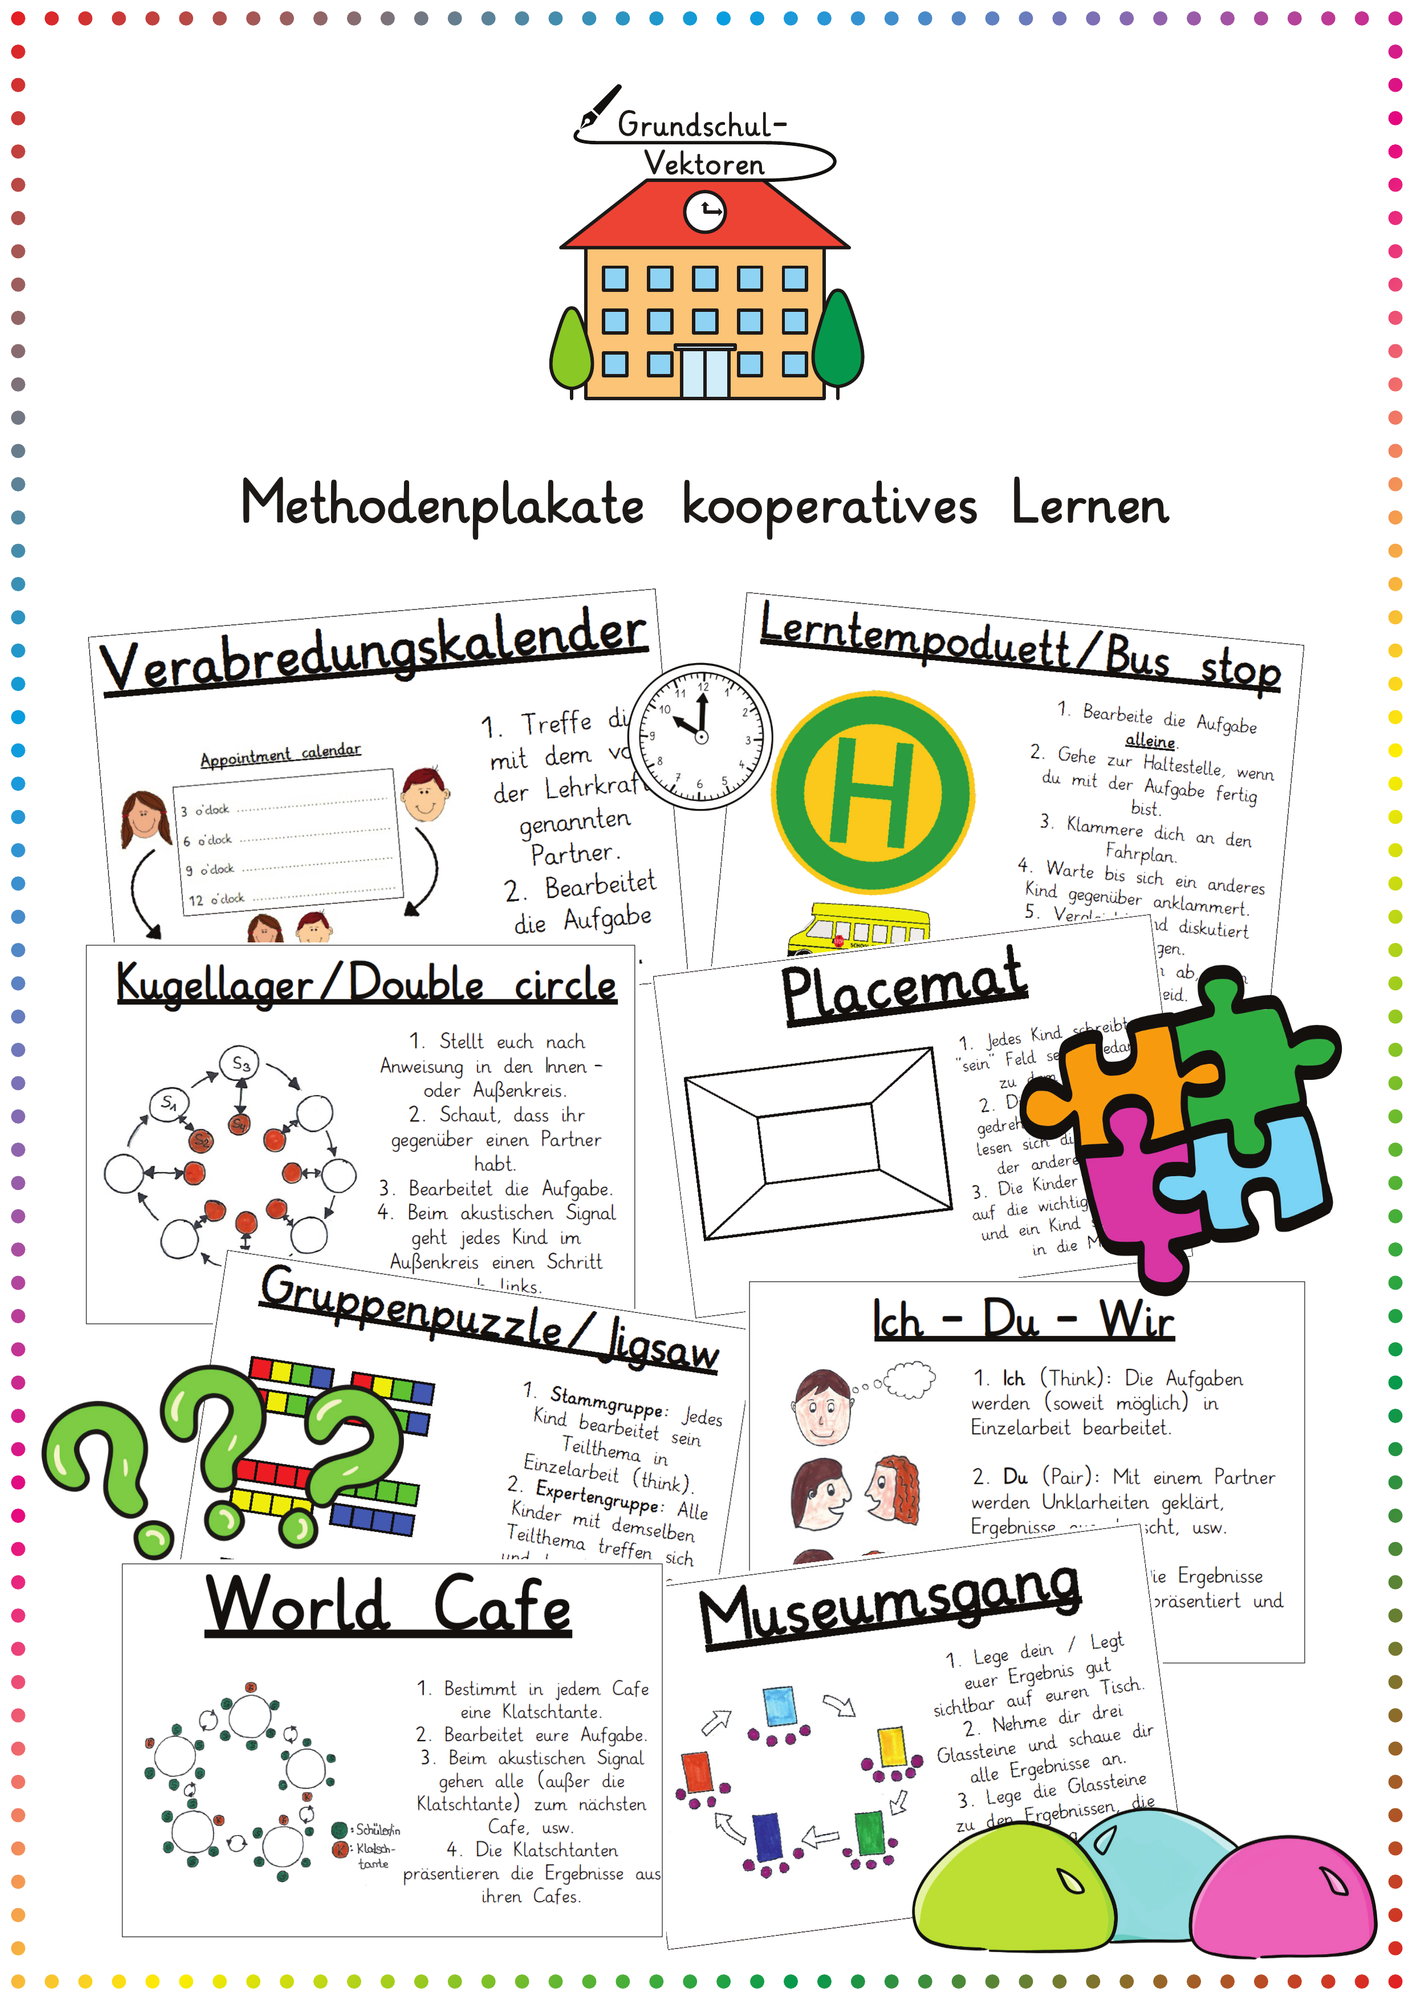 Grundschul-
Vektoren
Methodenplakate kooperatives Lernen
Verabredungskalender
Appointment calendar
3 o'clock
6 o'clock
9 o'clock
12 o'clock
1. Treffe
mit dem
der
genannten
Partner.
2. Bearbeitet
die Aufgabe
12
1
2
3
4
5
6
7
8
9
10
11
Lerntempoduett/Bus stop
H
SCHOOL
1. Bearbeite die Aufgabe
alleine.
2. Gehe zur Haltestelle, wenn
du mit der Aufgabe fertig
bist.
3. Klammere dich an den
Fahrplan.
4. Warte bis sich ein anderes
Kind gegenüber anklammert.
5. diskutiert
ab,
Kugellager/Double circle
S3
S1
S2
S4
1. Stellt euch nach
Anweisung in den Innen -
oder Außenkreis.
2. Schaut, dass ihr
gegenüber einen Partner
habt.
3. Bearbeitet die Aufgabe.
4. Beim akustischen Signal
geht jedes Kind im
Außenkreis einen Schritt
links.
Placemat
1. Jedes Kind schreibt
"sein" Feld
zu
2.
lesen sich
der andere
3. Die Kinder
auf die
und ein Kind
in die
Gruppenpuzzle/Jigsaw
1. Stammgruppe: Jedes
Kind bearbeitet sein
Teilthema in
Einzelarbeit (think).
2. Expertengruppe: Alle
Kinder mit demselben
Teilthema treffen sich
???
Ich - Du - Wir
1. Ich (Think): Die Aufgaben
werden (soweit möglich) in
Einzelarbeit bearbeitet.
2. Du (Pair): Mit einem Partner
werden Unklarheiten geklärt,
Ergebnisse usw.
Ergebnisse
und
World Cafe
S: Schüler/in
K: Klatsch-
tante
1. Bestimmt in jedem Cafe
eine Klatschtante.
2. Bearbeitet eure Aufgabe.
3. Beim akustischen Signal
gehen alle (außer die
Klatschtante) zum nächsten
Cafe, usw.
4. Die Klatschtanten
präsentieren die Ergebnisse aus
ihren Cafes.
Museumsgang
1. Lege dein / Legt
euer Ergebnis gut
sichtbar auf euren Tisch.
2. Nehme dir drei
Glassteine und schaue dir
alle Ergebnisse an.
3. Lege die Glassteine
zu den Ergebnissen, die